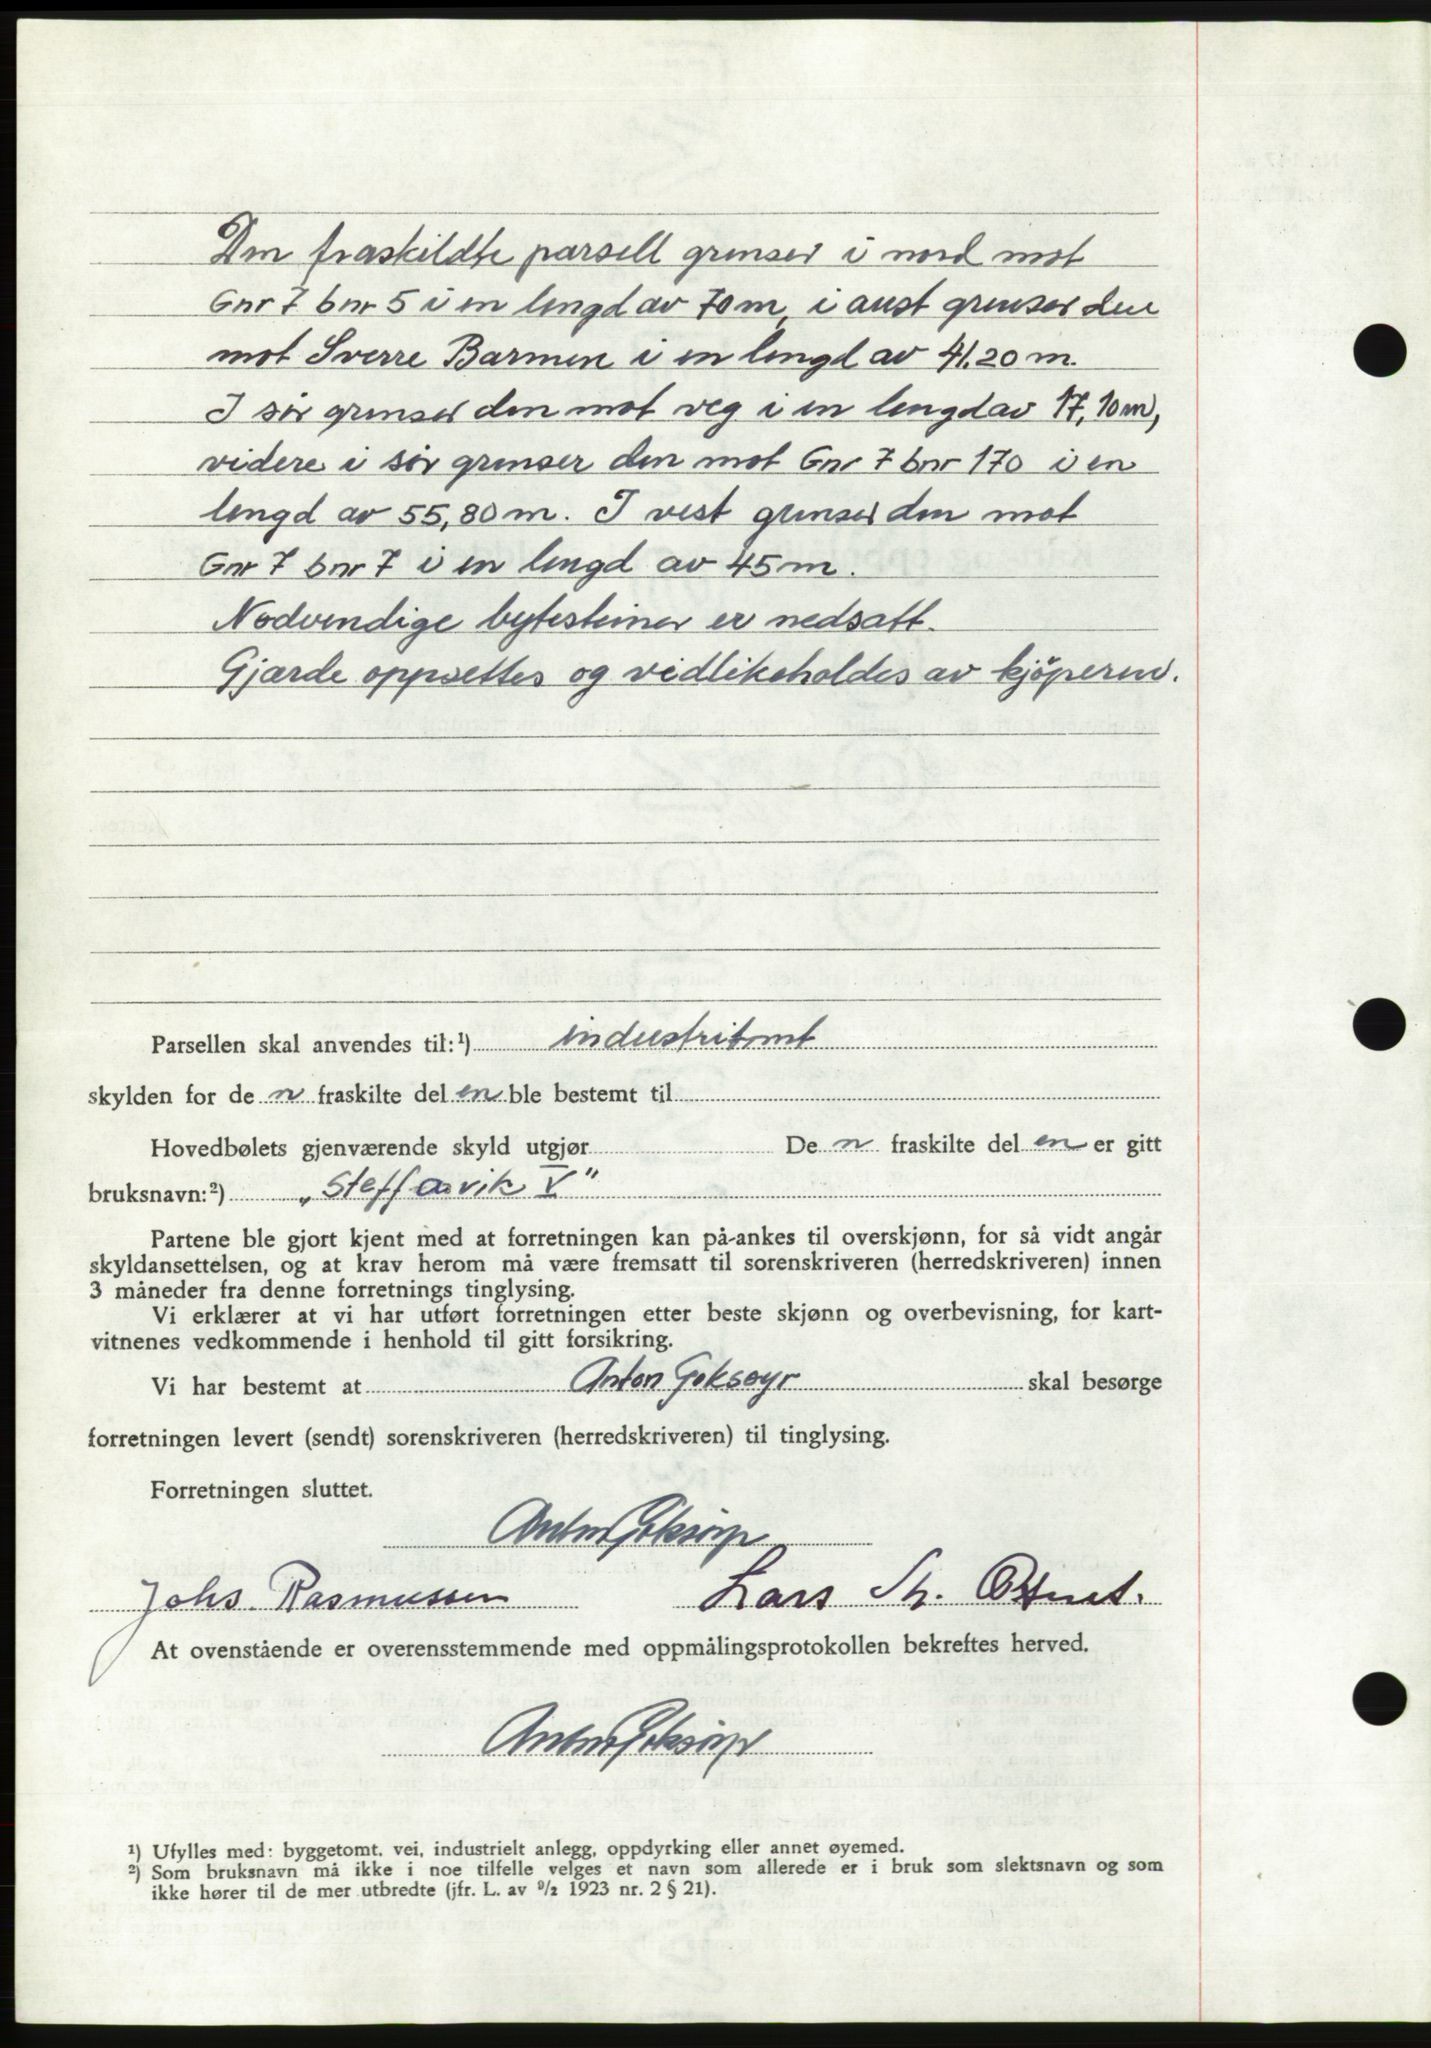 Den fraskildte parsell grenser i nord mot
Gnr 7 bnr 5 i en lengd av 70 m, i aust grenser den
mot Sverre Barmen i en lengd av 41.20 m.
I sør grenser den mot veg i en lengd av 17,10 m,
videre i sør grenser den mot Gnr 7 bnr 170 i en
lengd av 55,80 m. I vest grenser den mot
Gnr 7 bnr 7 i en lengd av 45 m.
Nødvendige bytesteiner er nedsatt.
Gjærde oppsettes og vidlikeholdes av kjøperen.
Parsellen skal anvendes til:¹) industritomt
skylden for de n fraskilte del en ble bestemt til
Hovedbølets gjenværende skyld utgjør De n fraskilte del en er gitt
bruksnavn:²) „Steffavik V"
Partene ble gjort kjent med at forretningen kan på-ankes til overskjønn, for så vidt angår
skyldansettelsen, og at krav herom må være fremsatt til sorenskriveren (herredskriveren) innen
3 måneder fra denne forretnings tinglysing.
Vi erklærer at vi har utført forretningen etter beste skjønn og overbevisning, for kart-
vitnenes vedkommende i henhold til gitt forsikring.
Vi har bestemt at Anton Goksøyr skal besørge
forretningen levert (sendt) sorenskriveren (herredskriveren) til tinglysing.
Forretningen sluttet.
Anton Goksøyr
Johs. Rasmussen Lars Th.
At ovenstående er overensstemmende med oppmålingsprotokollen bekreftes herved.
Anton Goksøyr
¹) Ufylles med: byggetomt, vei, industrielt anlegg, oppdyrking eller annet øyemed.
²) Som bruksnavn må ikke i noe tilfelle velges et navn som allerede er i bruk som slektsnavn og som
ikke hører til de mer utbredte (jfr. L. av 9/2 1923 nr. 2 § 21).